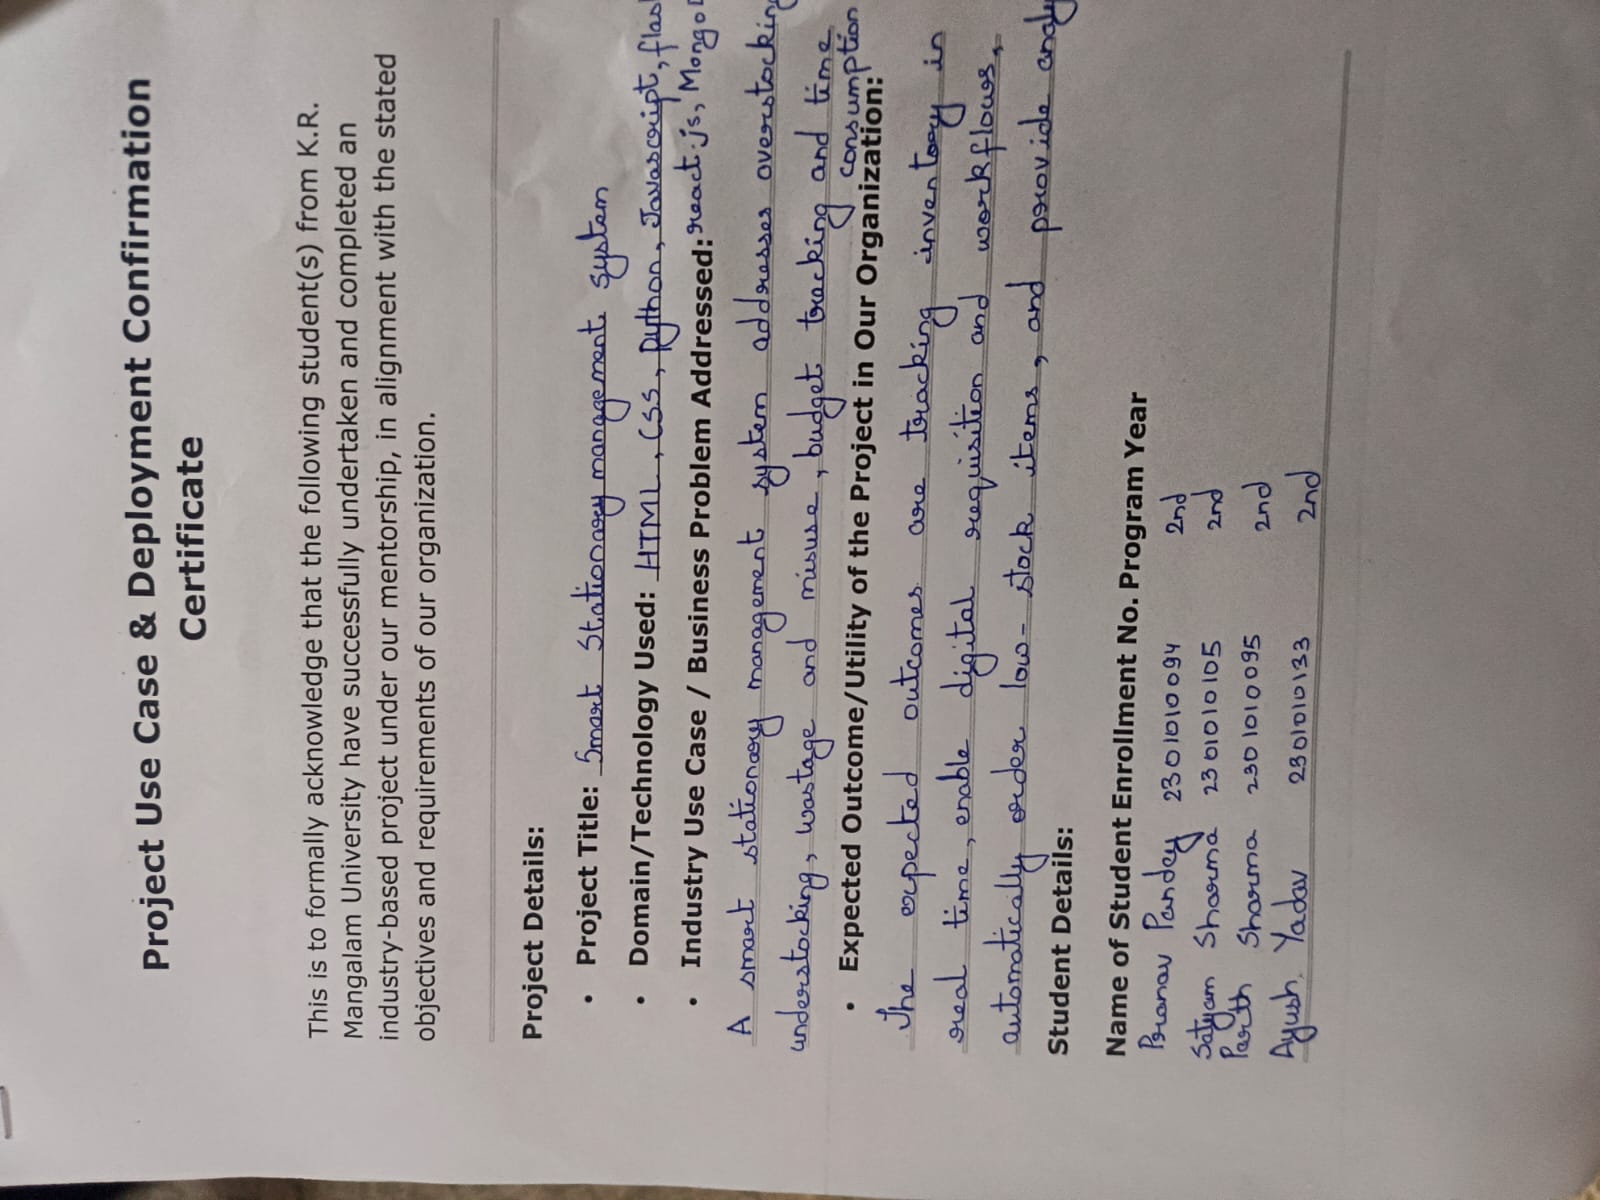 Project Use Case & Deployment Confirmation
Certificate
This is to formally acknowledge that the following student(s) from K.R.
Mangalam University have successfully undertaken and completed an
industry-based project under our mentorship, in alignment with the stated
objectives and requirements of our organization.
Project Details:
• Project Title: Smart Stationary management system
• Domain/Technology Used: HTML, CSS, Python, Javascript,
react.js,
• Industry Use Case / Business Problem Addressed:
A smart stationary management system addresses overstocking
understocking, wastage and misuse, budget tracking and time
consumption
• Expected Outcome/Utility of the Project in Our Organization:
The expected outcomes are tracking inventory in
real time, enable digital requisition and workflows,
automatically order low-stock items, and provide
Student Details:
Name of Student Enrollment No. Program Year
Pranav Pandey 2301010094 2nd
Satyam Sharma 2301010105 2nd
Parth Sharma 2301010095 2nd
Ayush Yadav 2301010133 2nd